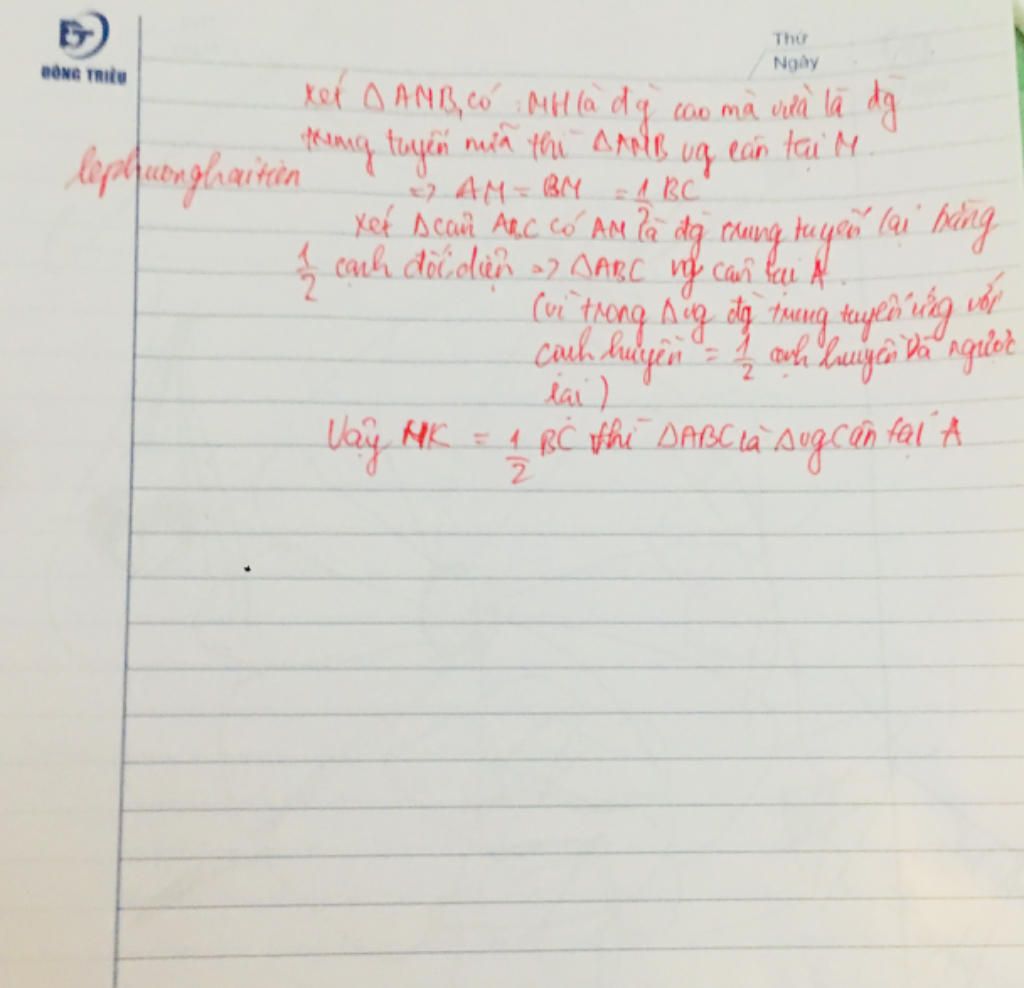 ĐÔNG TRIỀU
Thứ
Ngày
xét ΔAMB, có : MH là đg cao mà vừa là đg
trung tuyến nữa thì ΔAMB vg cân tại M.
lephuonghaitien
=> AM = BM = 1/2 BC
xét Δcân ABC có AM là đg trung tuyến lại bằng
1/2 cạnh đối diện => ΔABC vg cân tại A.
(vì trong Δvg đg trung tuyến ứng với
cạnh huyền = 1/2 cạnh huyền và ngược
lại)
Vậy HK = 1/2 BC thì ΔABC là Δvg cân tại A